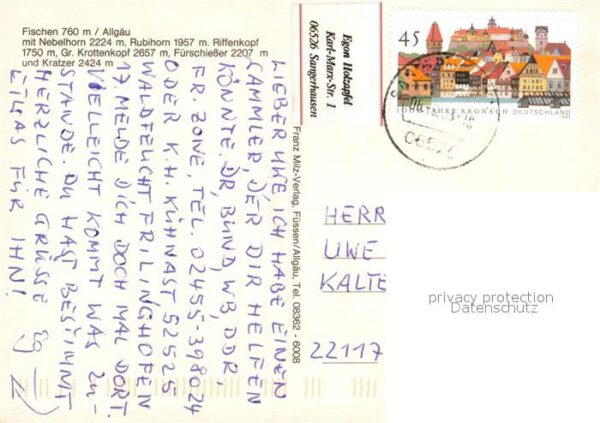 Fischen 760 m / Allgäu
mit Nebelhorn 2224 m, Rubihorn 1957 m. Riffenkopf
1750 m, Gr. Krottenkopf 2657 m, Fürschießer 2207 m
und Kratzer 2424 m
Egon Holzapfel
Karl-Marx-Str. 1
06526 Sangerhausen
45
1000 JAHRE KRONACH DEUTSCHLAND
LIEBER UWE ICH HABE EINEN
SAMMLER, DER DIR HELFEN
KÖNNTE. DR, BUND, WB, DDR,
ER ZONE, TEL. 02455-398024
ODER K.H. KÜHNAST 52525
WALDFEUCHT FRILINGHOFEN
17. MELDE DICH DOCH MAL DORT.
VIELLEICHT KOMMT WAS ZU-
STANDE. DU HAST BESTIMMT
HERZLICHE GRÜSSE
ETWAS FÜR IHN!
Franz Milz-Verlag, Füssen/Allgäu, Tel. 08362 - 6008
HERR
UWE
KALTE
22117
privacy protection
Datenschutz